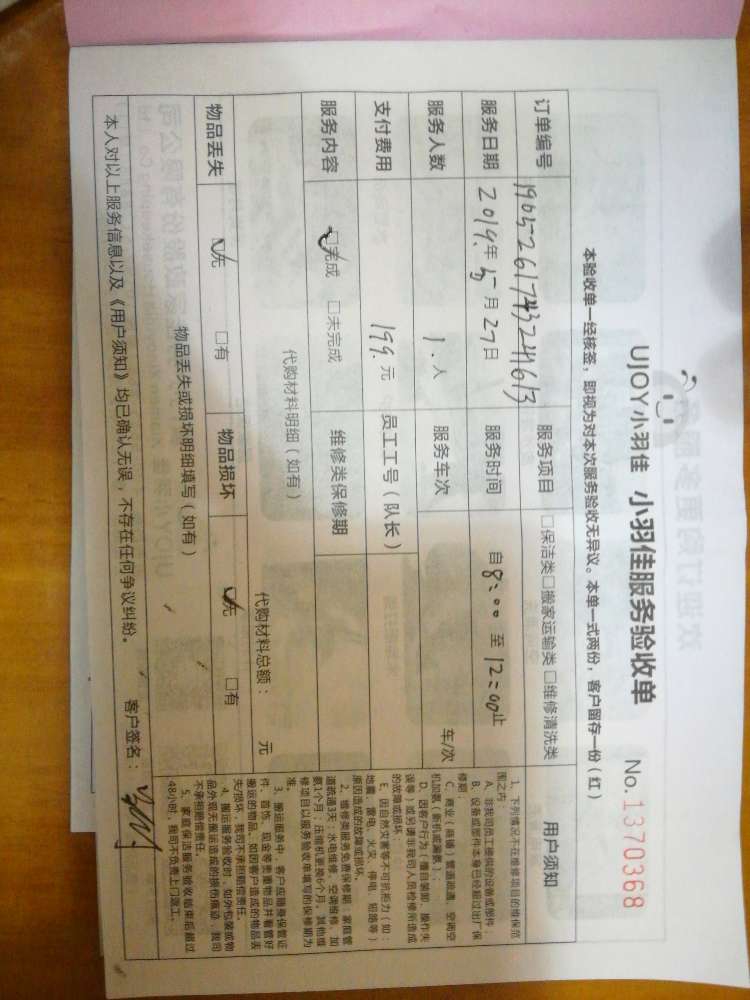 UJOY小羽佳 小羽佳服务验收单
No.1370368
本验收单一经核签，即视为对本次服务验收无异议。本单一式两份，客户留存一份（红）
订单编号 1905261743241613 服务项目 □保洁类□搬家运输类□维修清洗类
服务日期 2019年5月27日 服务时间 自8:00至12:00止
服务人数 1.人 服务车次 车/次
支付费用 199.元 员工工号（队长）
服务内容 ☑完成 □未完成 维修类保修期
代购材料明细（如有）
代购材料总额： 元
物品丢失 ☑无 □有 物品损坏 ☑无 □有
物品丢失或损坏明细填写（如有）
本人对以上服务信息以及《用户须知》均已确认无误，不存在任何争议纠纷。
客户签名：
用户须知
1、下列情况不在维修项目的维保范
围之内：
A、非我司员工提供的设备或部件；
B、设备或部件本身已经超过出厂保
修期；
C、商业（商铺）管道疏通、空调空
机加氨（新机加漏氨）；
D、因客户行为（擅自装卸、操作失
误等）或另请非我司人员检修所造成
的故障或损坏；
E、因自然灾害等不可抗拒力（如：
地震、雷电、火灾、停电、短路等）
原因造成的故障或损坏。
2、维修类服务免费保修期：家居管
道疏通3天；水电维修、空调维修、加
氨1个月；压缩机更换6个月。其他维
修项目以服务验收单填写的保修期为
准。
3、搬运服务中，客户应随身保管证
件、首饰、现金等贵重物品并看管好
搬运的物品，如因客户造成的物品丢
失/损坏，我司不承担赔偿责任。
4、搬运服务验收时，如外包装或物
品外观无搬运造成的损伤痕迹，我司
不承担赔偿责任。
5、家庭保洁服务验收结束后超过
48小时，我司不负责上门返工。